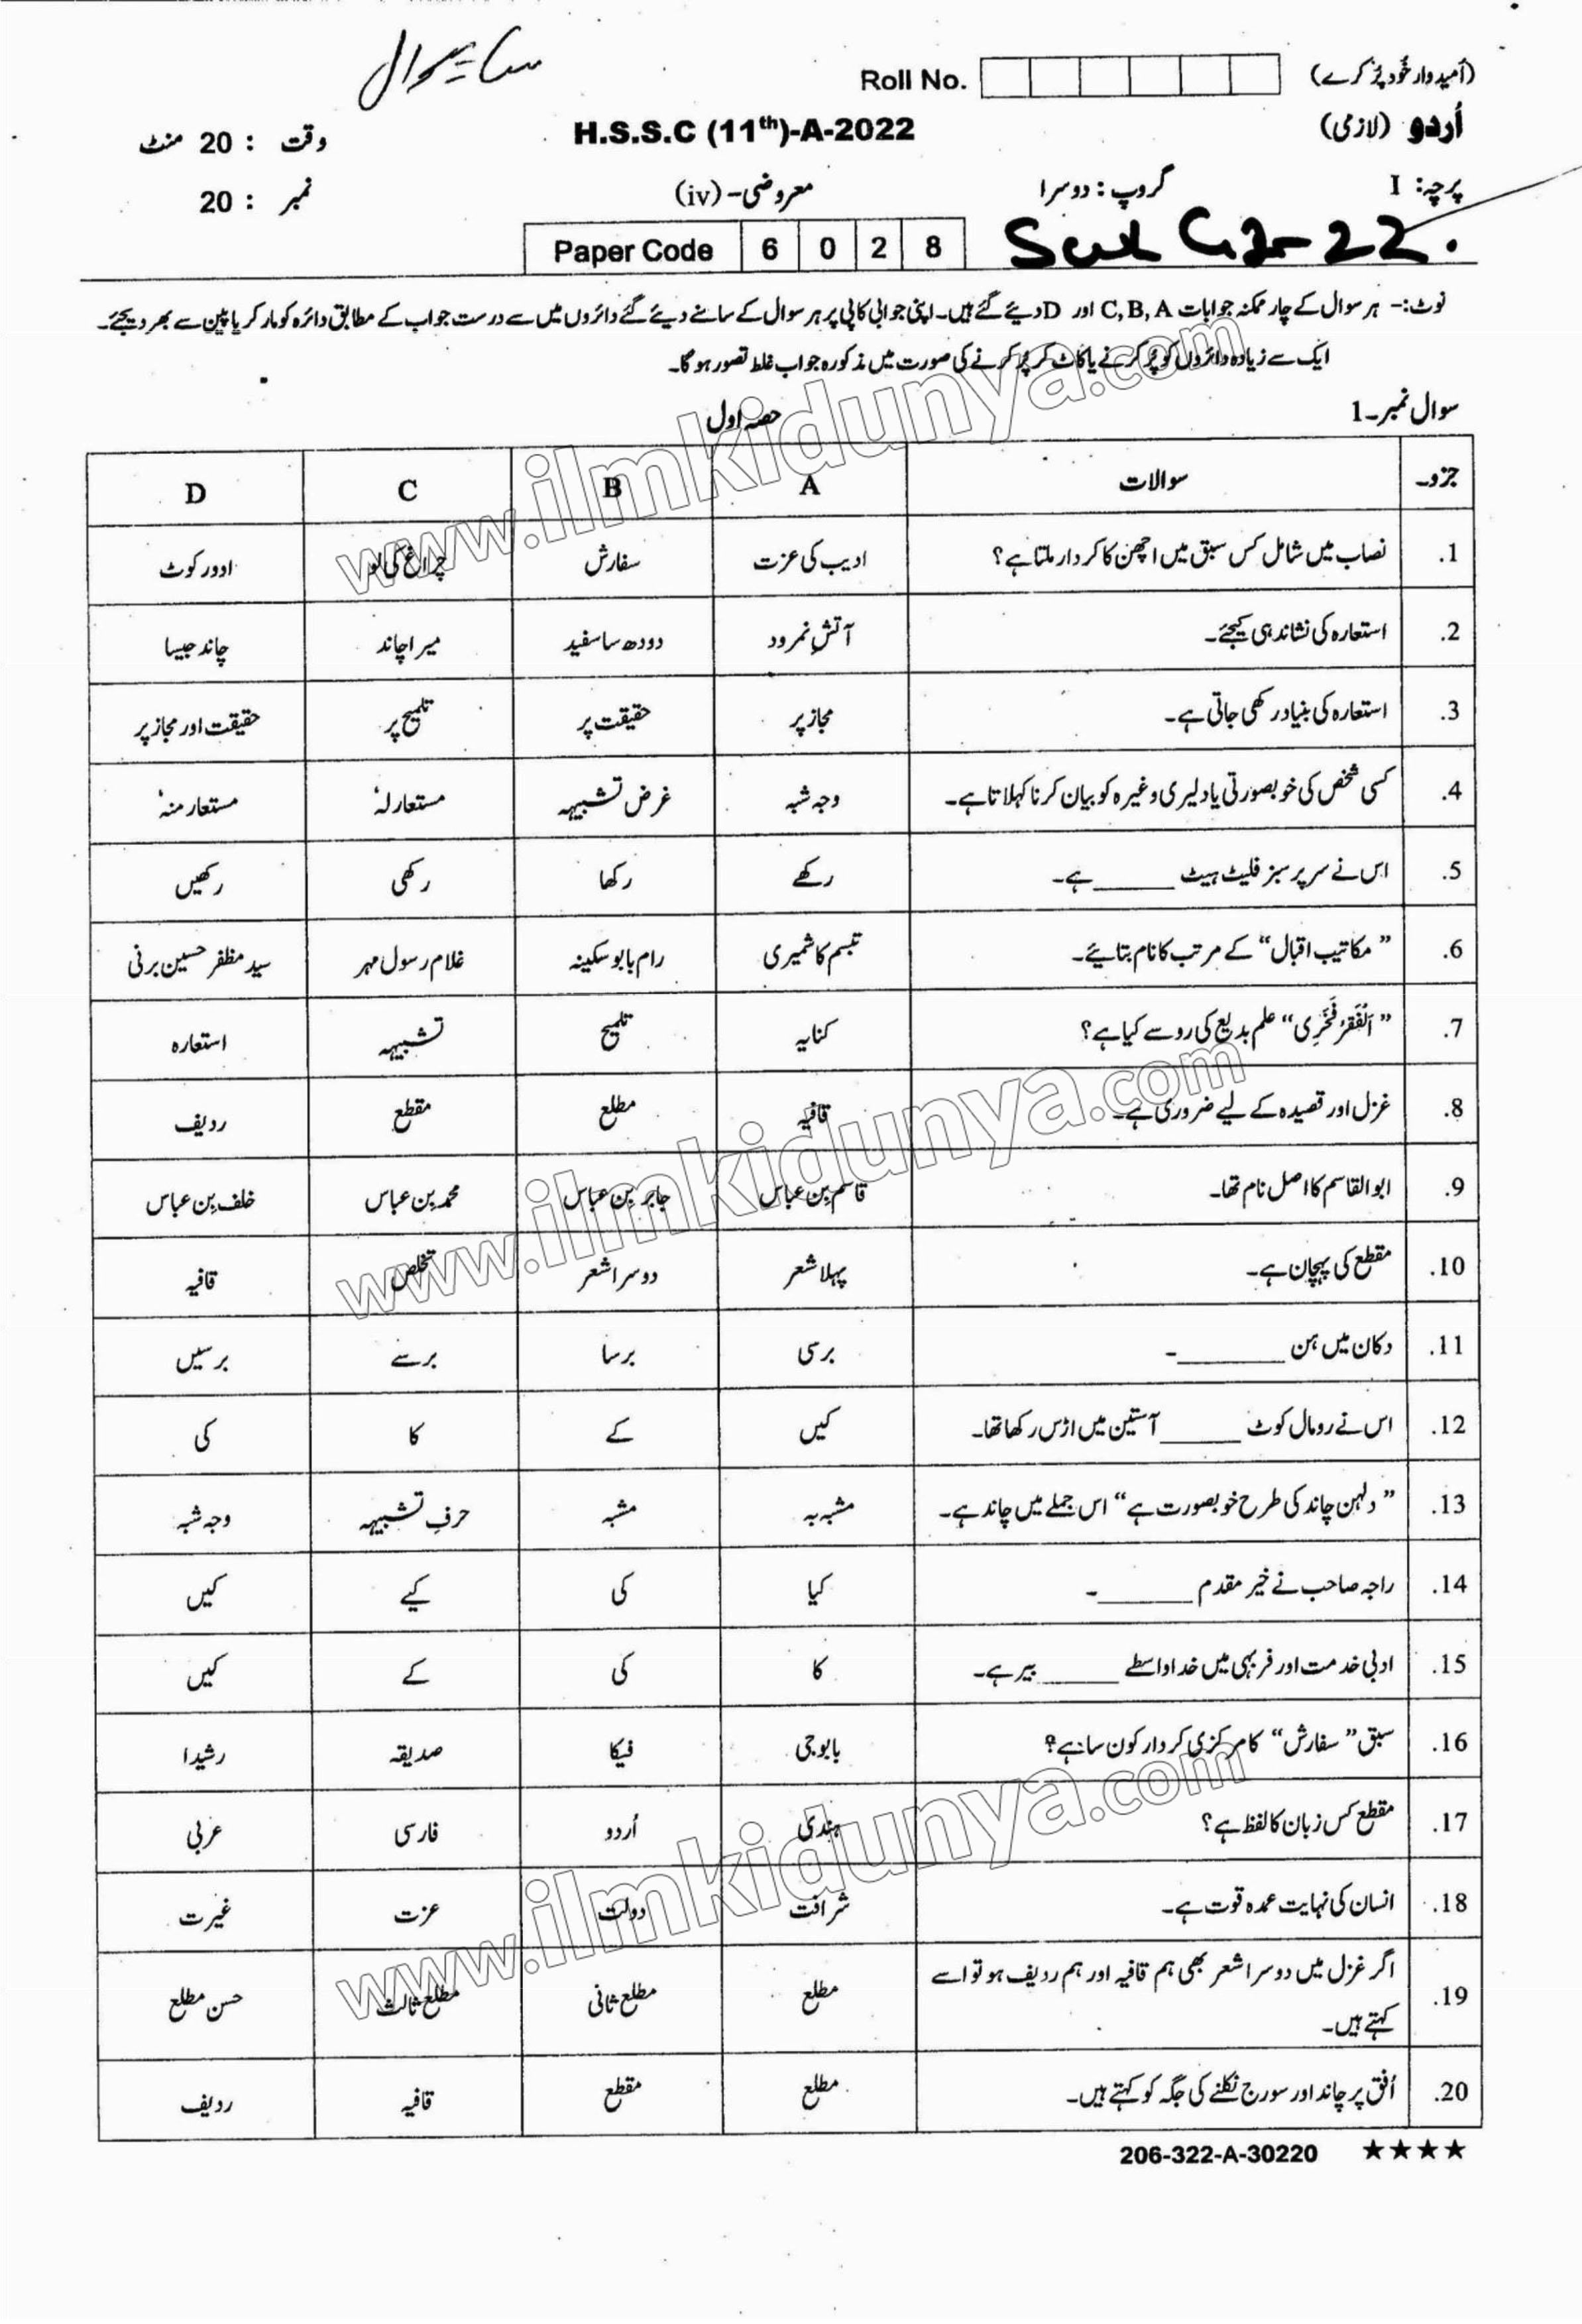 ساہیوال
Roll No. (امیدوار خود پُر کرے)
اُردو (لازمی) H.S.S.C (11th)-A-2022 وقت : 20 منٹ
پرچہ: I گروپ: دوسرا معروضی-(iv) نمبر : 20
Paper Code 6 0 2 8 G2-22.
نوٹ:- ہر سوال کے چار ممکنہ جوابات C, B, A اور D دیئے گئے ہیں۔ اپنی جوابی کاپی پر ہر سوال کے سامنے دیئے گئے دائروں میں سے درست جواب کے مطابق دائرہ کو مارکر یا پین سے بھر دیجئے۔
ایک سے زیادہ دائروں کو پُر کرنے یا کاٹ کر پُر کرنے کی صورت میں مذکورہ جواب غلط تصور ہو گا۔
سوال نمبر۔1 حصہ اول
جزو۔ سوالات A B C D
1. نصاب میں شامل کس سبق میں اچھن کا کردار ملتا ہے؟ ادیب کی عزت سفارش چراغ کی لو اوور کوٹ
2. استعارہ کی نشاندہی کیجئے۔ آتشِ نمرود دودھ سا سفید میرا چاند چاند جیسا
3. استعارہ کی بنیاد رکھی جاتی ہے۔ مجاز پر حقیقت پر تلمیح پر حقیقت اور مجاز پر
4. کسی شخص کی خوبصورتی یا دلیری وغیرہ کو بیان کرنا کہلاتا ہے۔ وجہ شبہ غرض تشبیہہ مستعار لہٗ مستعار منہٗ
5. اس نے سر پر سبز فلیٹ ہیٹ ______ ہے۔ رکھے رکھا رکھی رکھیں
6. ”مکاتیب اقبال“ کے مرتب کا نام بتائیے۔ تبسم کاشمیری رام بابو سکینہ غلام رسول مہر سید مظفر حسین برنی
7. ”اَلْفَقْرُ فَخْرِی“ علم بدیع کی رو سے کیا ہے؟ کنایہ تلمیح تشبیہہ استعارہ
8. غزل اور قصیدہ کے لیے ضروری ہے۔ قافیہ مطلع مقطع ردیف
9. ابو القاسم کا اصل نام تھا۔ قاسم بن عباس جابر بن عباس محمد بن عباس خلف بن عباس
10. مقطع کی پہچان ہے۔ پہلا شعر دوسرا شعر تخلص قافیہ
11. دکان میں ہن ______۔ برسی برسا برسے برسیں
12. اس نے رومال کوٹ ______ آستین میں اڑس رکھا تھا۔ کیں کے کا کی
13. ”دلہن چاند کی طرح خوبصورت ہے“ اس جملے میں چاند ہے۔ مشبہ بہ مشبہ حرفِ تشبیہہ وجہ شبہ
14. راجہ صاحب نے خیر مقدم ______۔ کیا کی کیے کیں
15. ادبی خدمت اور فربہی میں خدا واسطے ______ بیر ہے۔ کا کی کے کیں
16. سبق ”سفارش“ کا مرکزی کردار کون سا ہے؟ بابو جی فیکا صدیقہ رشیدا
17. مقطع کس زبان کا لفظ ہے؟ ہندی اُردو فارسی عربی
18. انسان کی نہایت عمدہ قوت ہے۔ شرافت دولت عزت غیرت
19. اگر غزل میں دوسرا شعر بھی ہم قافیہ اور ہم ردیف ہو تو اسے
کہتے ہیں۔ مطلع مطلع ثانی مطلع ثالث حسن مطلع
20. اُفق پر چاند اور سورج نکلنے کی جگہ کو کہتے ہیں۔ مطلع مقطع قافیہ ردیف
206-322-A-30220 ★★★★
www.ilmkidunya.com
www.ilmkidunya.com
www.ilmkidunya.com